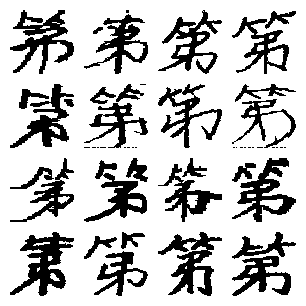 第第第第
第第第第
第第第第
第第第第